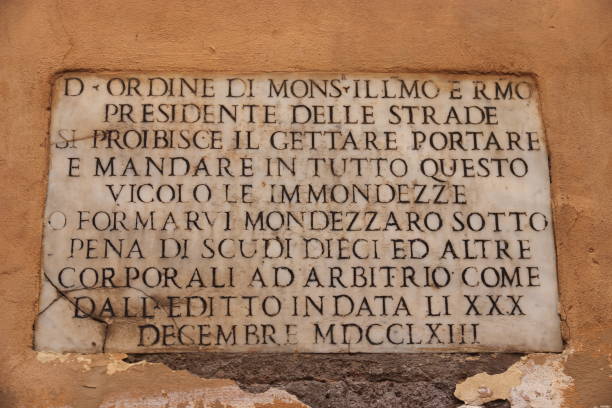 D · ORDINE DI MONS · ILLMO E RMO
PRESIDENTE DELLE STRADE
SI PROIBISCE IL GETTARE PORTARE
E MANDARE IN TUTTO QUESTO
VICOLO LE IMMONDEZZE
O FORMARVI MONDEZZARO SOTTO
PENA DI SCUDI DIECI ED ALTRE
CORPORALI AD ARBITRIO COME
DALL EDITTO IN DATA LI XXX
DECEMBRE MDCCLXIII